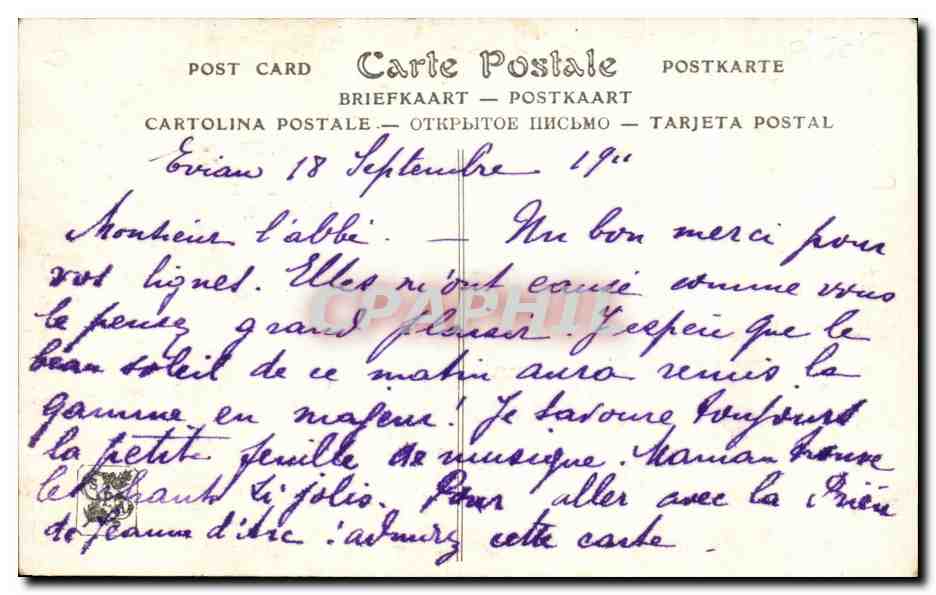 POST CARD Carte Postale POSTKARTE
BRIEFKAART — POSTKAART
CARTOLINA POSTALE — ОТКРЫТОЕ ПИСЬМО — TARJETA POSTAL
Evian 18 Septembre 1911
Monsieur l'abbé. — Un bon merci pour
vos lignes. Elles m'ont causé comme vous
le pensez grand plaisir. J'espère que le
beau soleil de ce matin aura remis la
gamme en majeur! Je savoure toujours
la petite feuille de musique. Maman trouve
les chants si jolis. Pour aller avec la Prière
de Jeanne d'Arc : admirez cette carte.
CPAPHIL